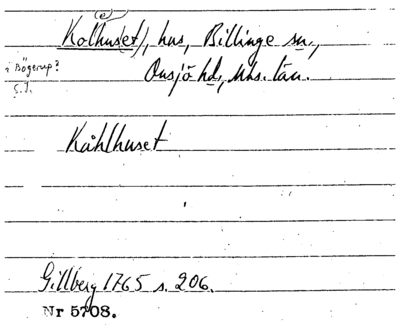 (e)
Kolhus(et), hus, Billinge sn.,
i Bögerup?
Onsjö hd, Mhs. län.
S.T.
Kåhlhuset
Gillberg 1765 s. 206.
Nr 5708.